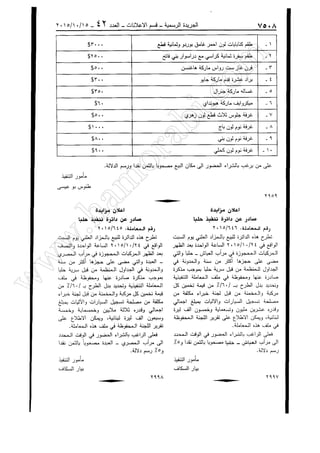 ٧٥٠٨ الجريدة الرسمية - قسم الإعلانات - العدد ٤٢ - ٢٠١٥/١٠/١٥
١ - طقم كنابايات لون احمر غامق بوردو وثمانية قطع $٣٠٠٠
٢ - طقم سفرة ثمانية كراسي مع دراسوار بني فاتح $٥٠٠
٣ - فرن غاز ست رواس ماركة $٥٠٠
٤ - براد عشرة قدم ماركة $٣٠٠
٥ - غسالة ماركة جنرال $٢٥٠
٦ - ميكروايف ماركة هيونداي $٦٠
٧ - غرفة جلوس ثلاث قطع لون زهري $٥٠٠
٨ - غرفة نوم لون بني $١٠٠٠
٩ - غرفة نوم لون بني $٥٠٠
١٠ - غرفة نوم لون كحلي $٦٠٠
على من يرغب بالشراء الحضور الى مكان البيع مصحوباً بالثمن نقداً ورسم الدلالة.
مأمور التنفيذ
طنوس بو عيسى
٢٩٥٩
اعلان مزايدة
صادر عن دائرة تنفيذ حلبا
رقم المعاملة: ٢٠١٥/٦٤٦
تطرح هذه الدائرة للبيع بالمزاد العلني يوم السبت
الواقع في ٢٠١٥/١٠/٢٤ الساعة الواحدة بعد الظهر
المركبات المحجوزة في مرآب العياش - حلبا والتي
مضى على حجزها أكثر من سنة والمدونة في
الجداول المنظمة من قبل سرية حلبا بموجب مذكرة
صادرة عنها ومحفوظة في ملف المعاملة التنفيذية
وتحديد بدل الطرح بـ /٦٠٪/ من قيمة تخمين كل
مركبة والمخمنة من قبل لجنة خبراء مكلفة من
مصلحة تسجيل السيارات والآليات بمبلغ اجمالي
وقدره عشرين مليون وتسعماية وخمسون الف ليرة
لبنانية، ويمكن الاطلاع على تقرير اللجنة المحفوظة
في ملف هذه المعاملة.
فعلى الراغب بالشراء الحضور في الوقت المحدد
الى مرآب العياش - حلبا مصحوباً بالثمن نقداً و٥٪
رسم دلالة.
مأمور التنفيذ
بيار السكاف
٢٩٩٧
اعلان مزايدة
صادر عن دائرة تنفيذ حلبا
رقم المعاملة: ٢٠١٥/٦٤٥
تطرح هذه الدائرة للبيع بالمزاد العلني يوم السبت
الواقع في ٢٠١٥/١٠/٢٤ الساعة الواحدة والنصف
بعد الظهر المركبات المحجوزة في مرآب المصري
- العبدة والتي مضى على حجزها أكثر من سنة
والمدونة في الجداول المنظمة من قبل سرية حلبا
بموجب مذكرة صادرة عنها ومحفوظة في ملف
المعاملة التنفيذية وتحديد بدل الطرح بـ /٦٠٪/ من
قيمة تخمين كل مركبة والمخمنة من قبل لجنة خبراء
مكلفة من مصلحة تسجيل السيارات والآليات بمبلغ
اجمالي وقدره ثلاثة ملايين وخمسماية وخمسة
وسبعون الف ليرة لبنانية، ويمكن الاطلاع على
تقرير اللجنة المحفوظة في ملف هذه المعاملة.
فعلى الراغب بالشراء الحضور في الوقت المحدد
الى مرآب المصري - العبدة مصحوباً بالثمن نقداً
و٥٪ رسم دلالة.
مأمور التنفيذ
بيار السكاف
٢٩٩٨